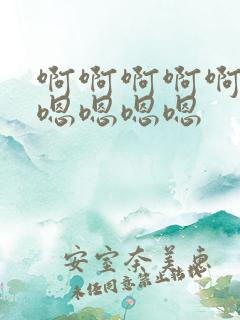 啊啊啊啊啊
嗯嗯嗯嗯
安室奈美惠
未经同意禁止转载